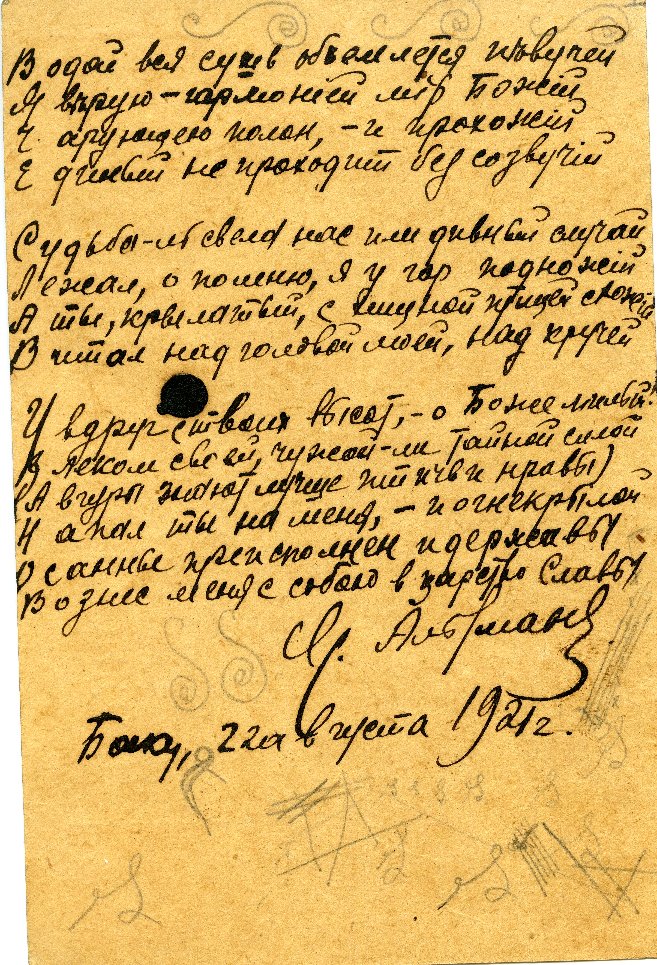 В одой вся сушь объемлется пѣвучей
Я вѣрую – гармоніей мір Божій
Ч арующею полон, – и прохожій
Е диный не проходит без созвучій
С удьба-ль свела нас или дивный случай
Л ежал, о помню, я у гор подножій
А ты, крылатый, с хищной птицей схожій
В итал над головой моей, над кручей
И вдруг с твоих высот, – о Боже милый!
В леком своей, чужой-ли тайной силой
(А вгуры знают лучше птичьи нравы)
Н апал ты на меня, – и огнекрылой
О санны преисполнен и державы
В ознес меня с собою в царство Славы
Альтман
Баку, 22 августа 1921 г.